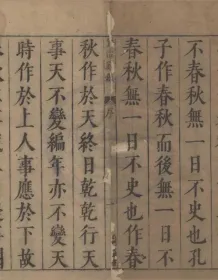 不春秋無一日不史也孔
子作春秋而後無一日不
春秋無一日不史也作春
序
秋作於天終日乾乾行天
事天不變編年亦不變天
時作於上人事應於下故